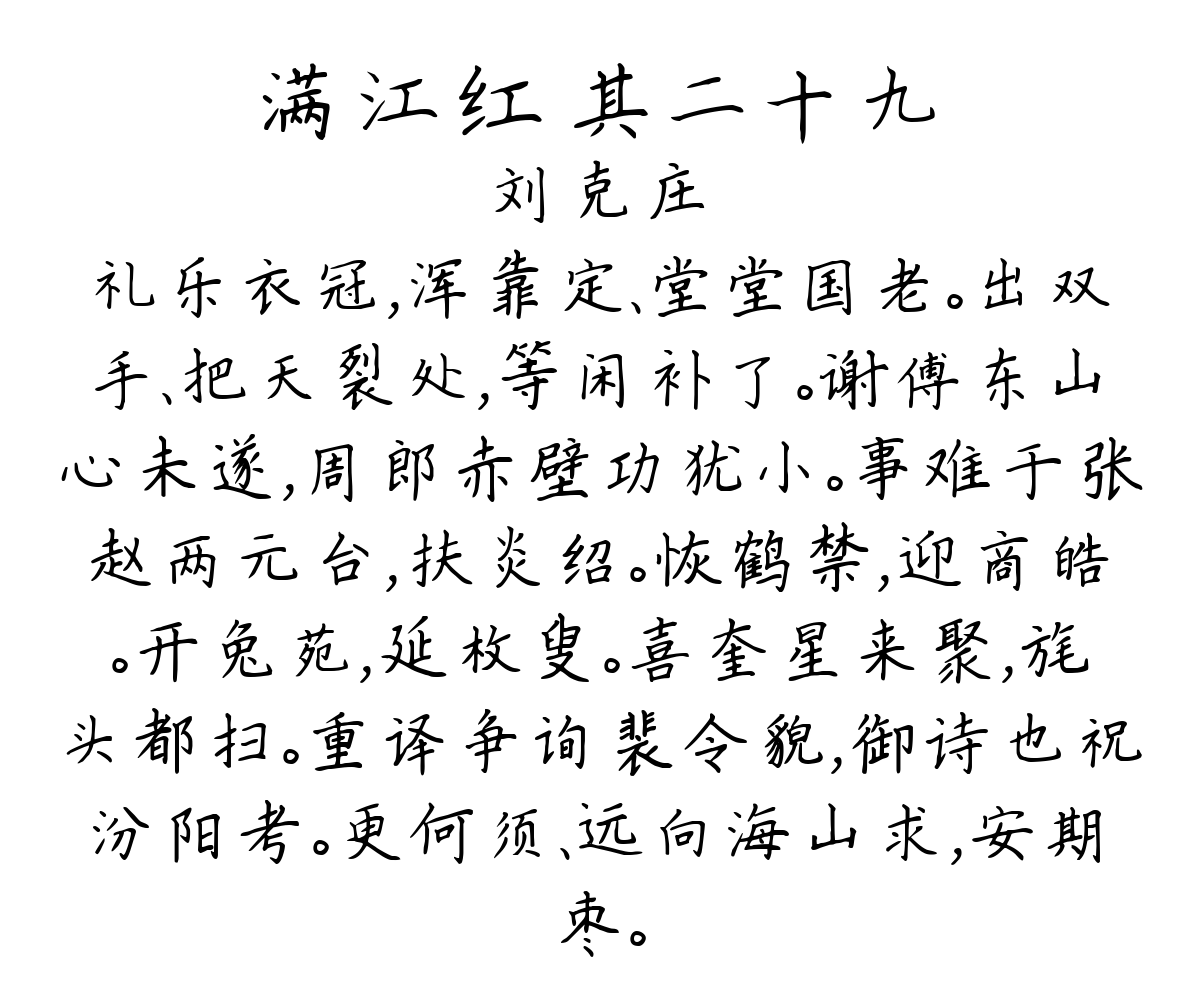 满江红 其二十九
刘克庄
礼乐衣冠,浑靠定、堂堂国老。出双
手、把天裂处,等闲补了。谢傅东山
心未遂,周郎赤壁功犹小。事难于张
赵两元台,扶炎绍。恢鹤禁,迎商皓
。开兔苑,延枚叟。喜奎星来聚,旄
头都扫。重译争询裴令貌,御诗也祝
汾阳考。更何须、远向海山求,安期
枣。